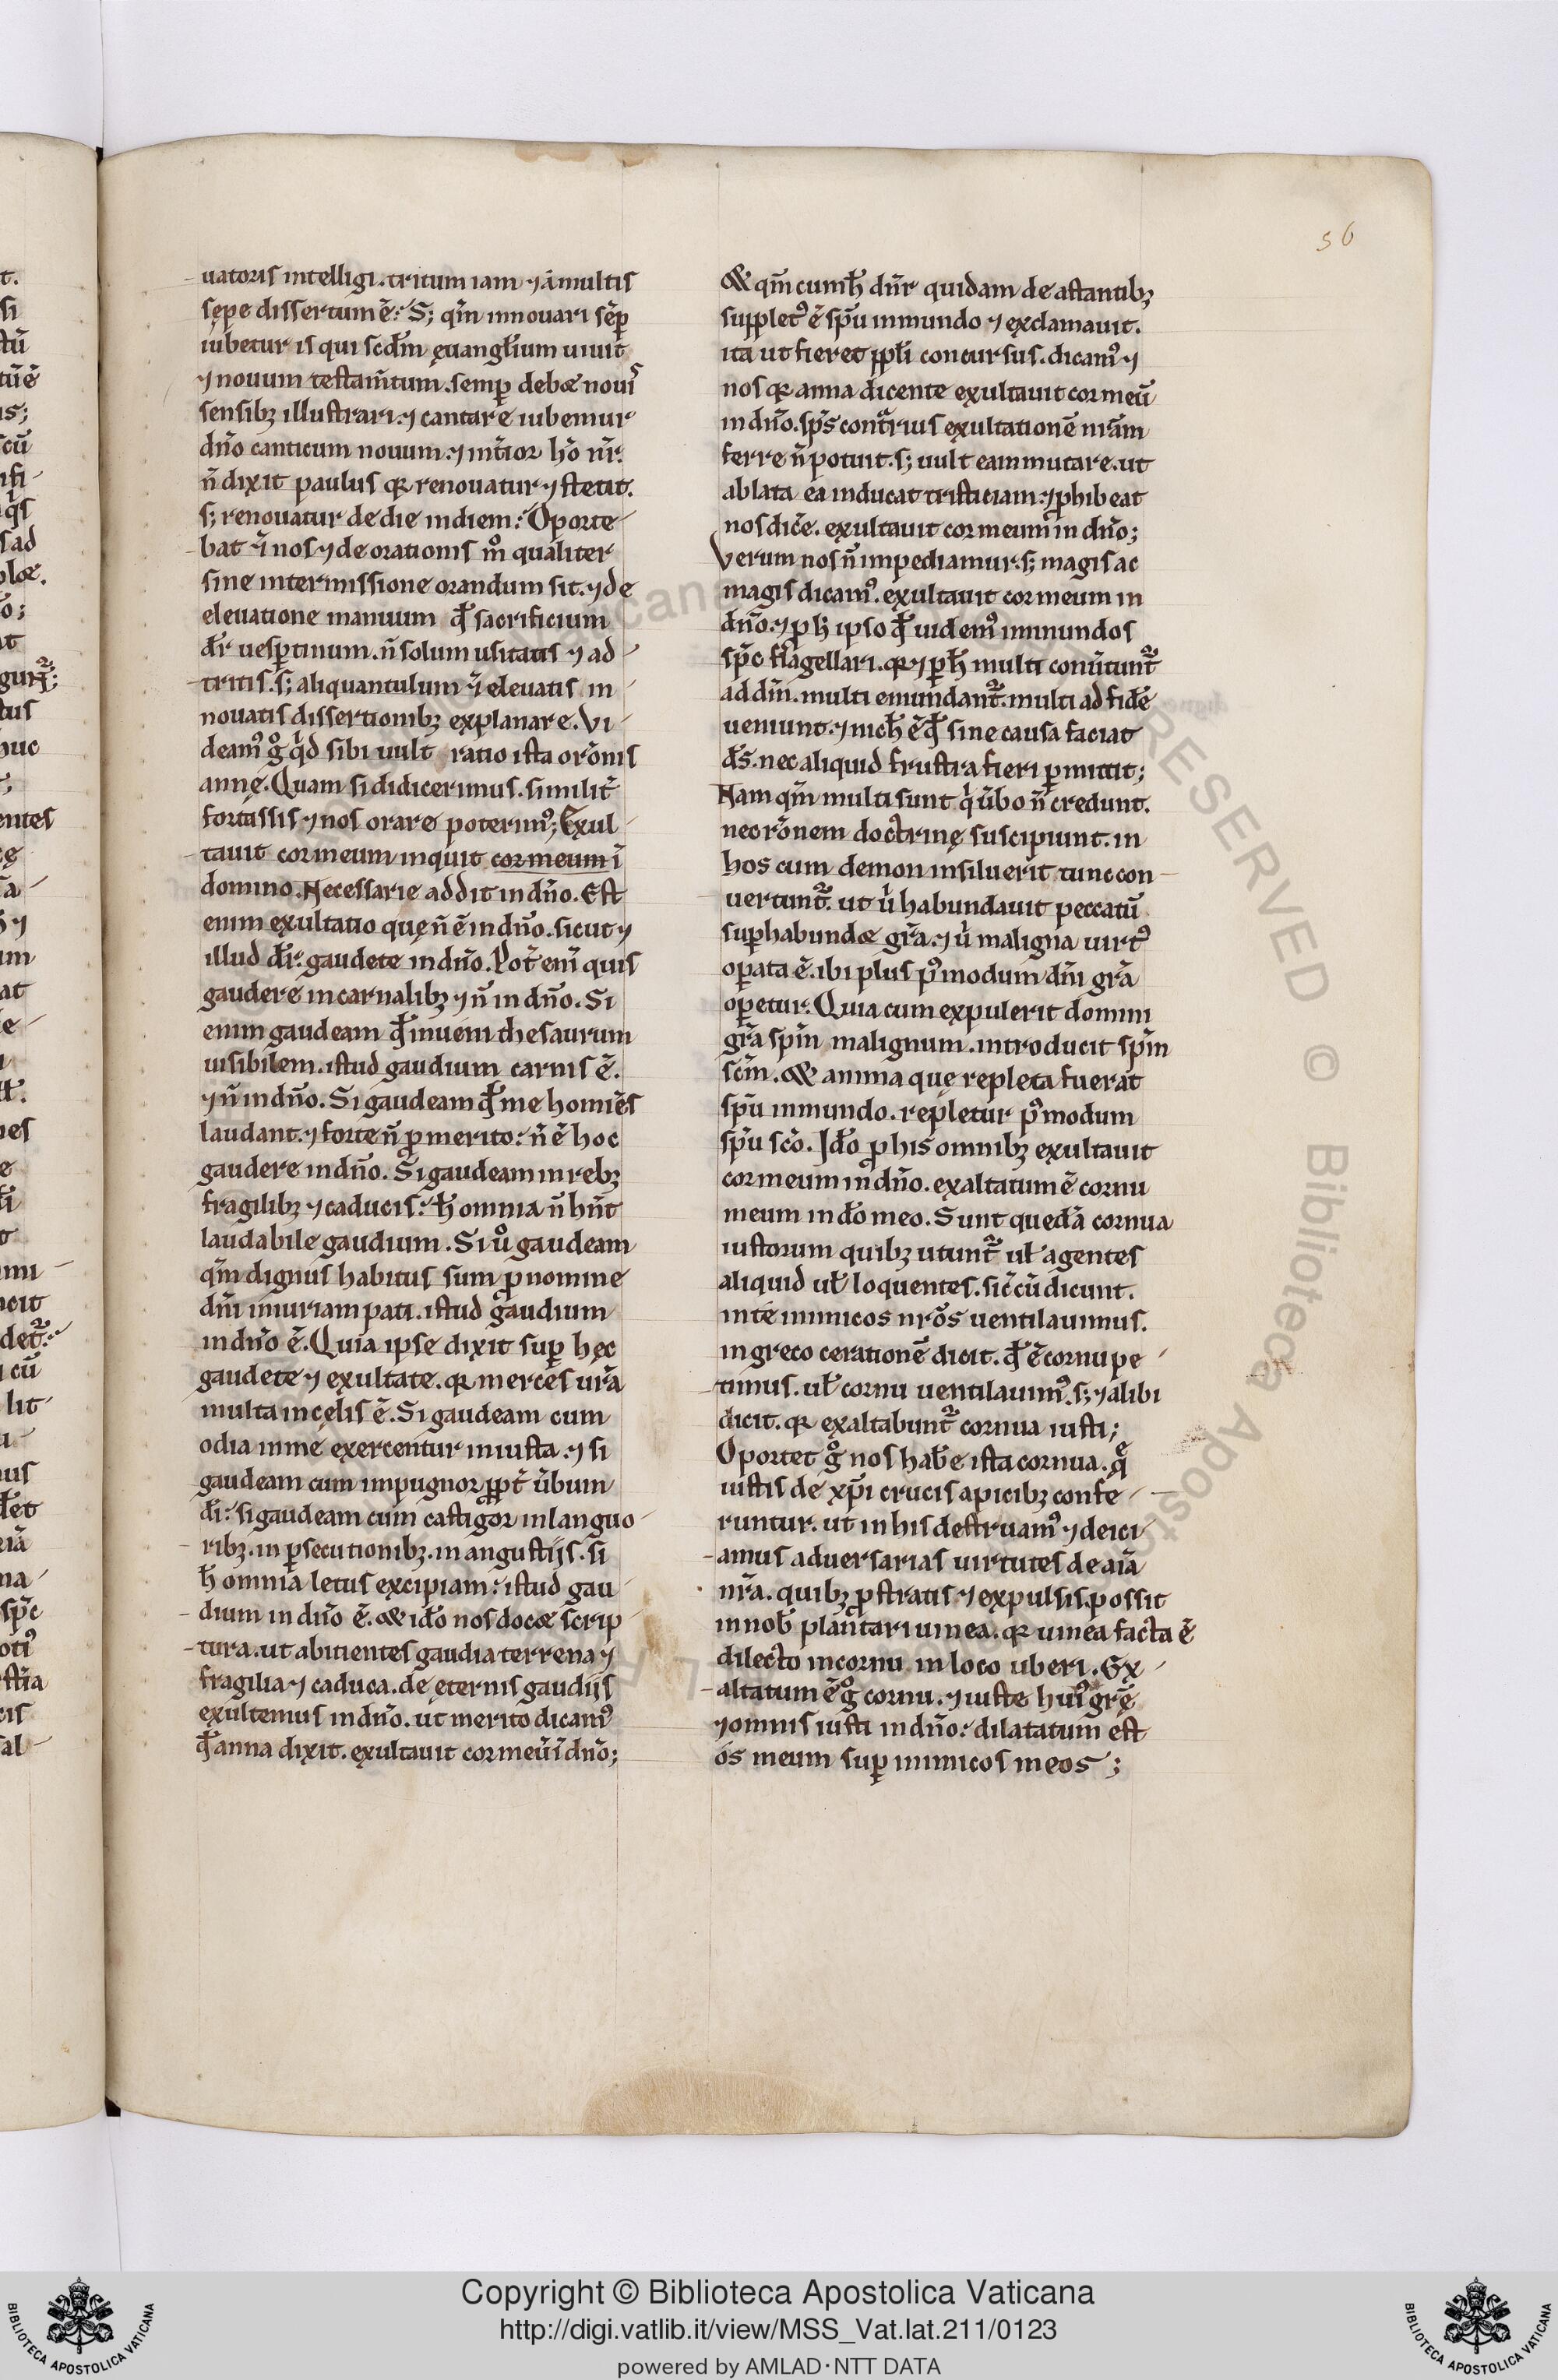 56
uatoris intelligi. tritum iam ⁊ a multis
sępe dissertum ē. S; qm̄ innouari sēp
iubetur is qui scd̄m ęuangl̄ium uiuit
⁊ nouum testam̄tum. semꝑ debet nouis
sensibꝫ illustrari. ⁊ cantare iubemur
dn̄o canticum nouum. ⁊ int̄ior hō nr̄.
n̄ dixit paulus qꝛ renouatur ⁊ stetit.
s; renouatur de die in diem. Oporte
bat ḡ nos ⁊ de orationis mͦ qualiter
sine intermissione orandum sit. ⁊ de
eleuatione manuum qđ sacrificium
dr̄ uesꝑtinum. n̄ solum usitatis ⁊ ad
tritis. s; aliquantulum ⁊ eleuatis in
nouatis dissertionibꝫ explanare. Vi
deamꝰ gͦ qͥd sibi uult ratio ista orōnis
annę. Quam si didicerimus. similit̄
fortassis ⁊ nos orare poterimꝰ; Exul
tauit cor meum inquit cor meum ī
domino. Necessarie addit in dn̄o. Est
enim exultatio quę n̄ ē in dn̄o. sicut ⁊
illud dr̄. gaudete in dn̄o. Pot̄ enī quis
gaudere in carnalibꝫ ⁊ n̄ in dn̄o. Si
enim gaudeam qđ inueni thesaurum
uisibilem. istud gaudium carnis ē.
⁊ n̄ in dn̄o. Si gaudeam qđ me homiēs
laudant. ⁊ forte n̄ ꝓ merito. n̄ ē hoc
gaudere in dn̄o. Si gaudeam in rebꝫ
fragilibꝫ ⁊ caducis. ħ omnia n̄ hn̄t
laudabile gaudium. Si uͦ gaudeam
qm̄ dignus habitus sum ꝓ nomine
dn̄i iniuriam pati. istud gaudium
in dn̄o ē. Quia ipse dixit suꝑ hęc
gaudete ⁊ exultate. qꝛ merces urā
multa in cęlis ē. Si gaudeam cum
odia in me exercentur iniusta. ⁊ si
gaudeam cum impugnor ꝓpt̄ ūbum
dī. si gaudeam cum castigor in languo
ribꝫ. in ꝑsecutionibꝫ. in angustijs. si
ħ omnia letus excipiam. istud gau
dium in dn̄o ē. & iđo nos docet scrip
tura. ut abitientes gaudia terrena ⁊
fragilia ⁊ caduca. de ęternis gaudijs
exultemus in dn̄o. ut merito dicamꝰ
qđ anna dixit. exultauit cor meū ī dn̄o;
& qm̄ cum ħ dn̄r quidam de astantibꝫ
suppletꝰ ē spū inmundo ⁊ exclamauit.
ita ut fieret ppl̄i concursus. dicamꝰ ⁊
nos qꝛ anna dicente exultauit cor meū
in dn̄o. sp̄s contͣrius exultationē nrām
ferre n̄ potuit. s; uult eam mutare. ut
ablata ea inducat tristiciam. ⁊ ꝓhibeat
nos dic̄e. exultauit cor meum in dn̄o;
Verum nos n̄ impediamur. s; magis ac
magis dicamꝰ. exultauit cor meum in
dn̄o. ⁊ ꝑ ħ ipso qđ uidemꝰ inmundos
spc̄ flagellari. qꝛ ⁊ ꝑ ħ multi conūtunt᷑
ad dn̄m. multi emundant᷑. multi ad fidē
ueniunt. ⁊ nich̄ ē qđ sine causa faciat
ds̄. nec aliquid frustra fieri ꝑmittit;
Nam qm̄ multi sunt qͥ ūbo n̄ credunt.
nec rōnem doctrinę suscipiunt. in
hos cum demon insiluerit tunc con
uertunt᷑. ut uͥ habundauit peccatū
suꝑhabundet gr̄a. ⁊ uͥ maligna uirtꝰ
oꝑata ē. ibi plus pꝰmodum dn̄i gr̄a
oꝑetur. Quia cum expulerit domini
gr̄a spm̄ malignum. introducit spm̄
scm̄. & anima quę repleta fuerat
spū inmundo. repletur pꝰmodum
spū scō. Iđo ꝓ his omnibꝫ exultauit
cor meum in dn̄o. exaltatum ē cornu
meum in dō meo. Sunt quedā cornua
iustorum quibꝫ utunt᷑ ul̄ agentes
aliquid ul̄ loquentes. sic̄ cū dicunt.
in te inimicos nrōs uentilauimus.
in greco cerationē dicit. qđ ē cornu pe
timus. ul̄ cornu uentilauimꝰ. s; ⁊ alibi
dicit. qꝛ exaltabunt᷑ cornua iusti;
Oportet gͦ nos hab̄e ista cornua. qͤ
iustis de xp̄i crucis apicibꝫ confe
runtur. ut in his destruamꝰ ⁊ deici
amus aduersarias uirtutes de aīa
nrā. quibꝫ ꝓstratis ⁊ expulsis. possit
in nob̄ plantari uinea. qꝛ uinea facta ē
dilecto in cornu in loco uberi. Ex
altatum ē gͦ cornu. ⁊ iuste huiꝰ gr̄ę
⁊ omnis iusti in dn̄o. dilatatum est
os meum suꝑ inimicos meos;
Copyright © Biblioteca Apostolica Vaticana
http://digi.vatlib.it/view/MSS_Vat.lat.211/0123
powered by AMLAD·NTT DATA